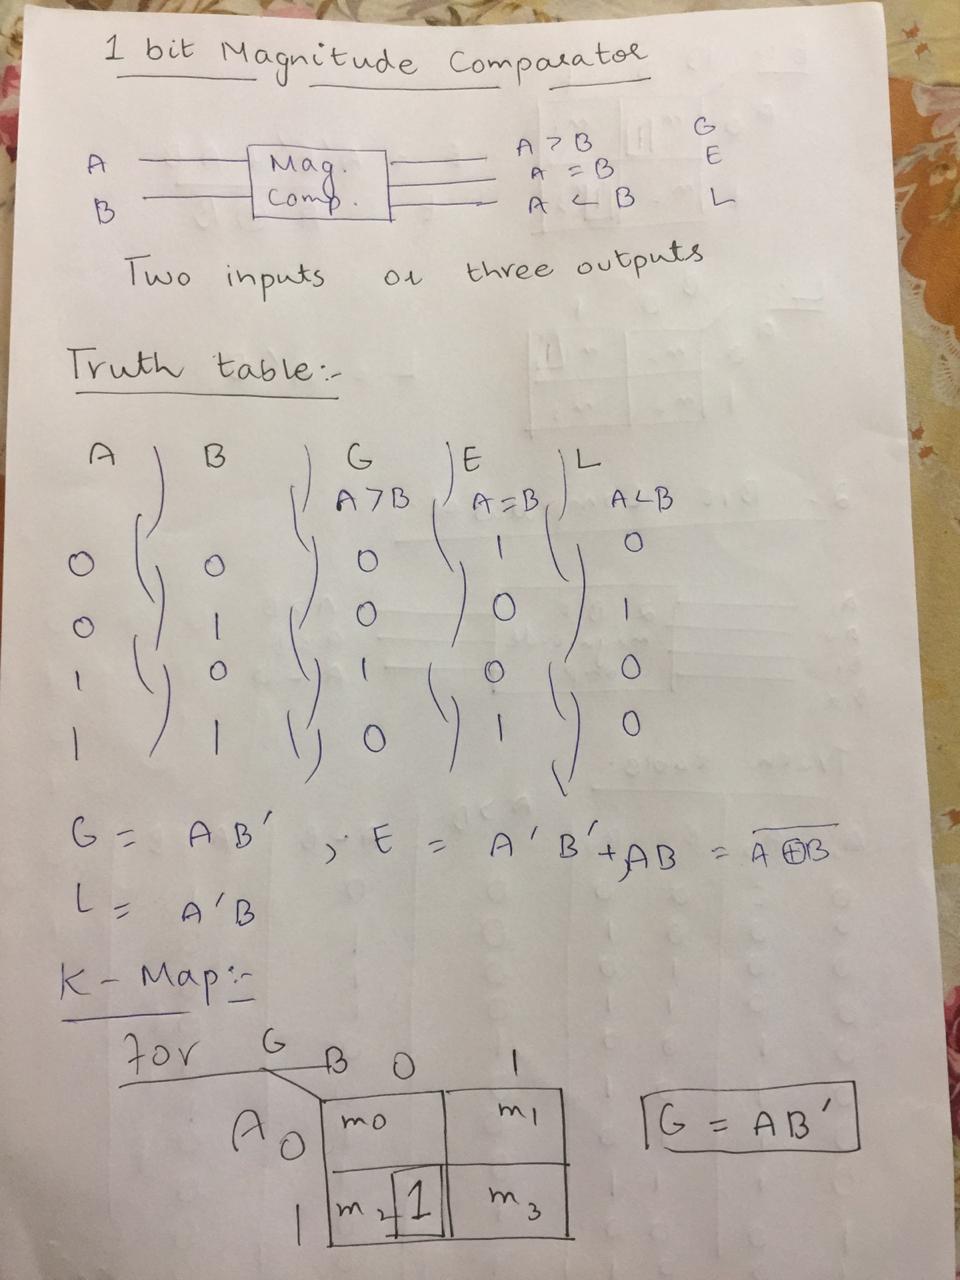 1 bit Magnitude Comparator
A Mag. A > B G
A = B E
B Comp. A < B L
Two inputs or three outputs
Truth table:-
A B G E L
A > B A = B A < B
0 0 0 1 0
0 1 0 0 1
1 0 1 0 0
1 1 0 1 0
G = AB' , E = A'B' + AB = \overline{A ⊕ B}
L = A'B
K - Map:-
For G
B 0 1
A 0 m0 m1 G = AB'
1 m2 1 m3